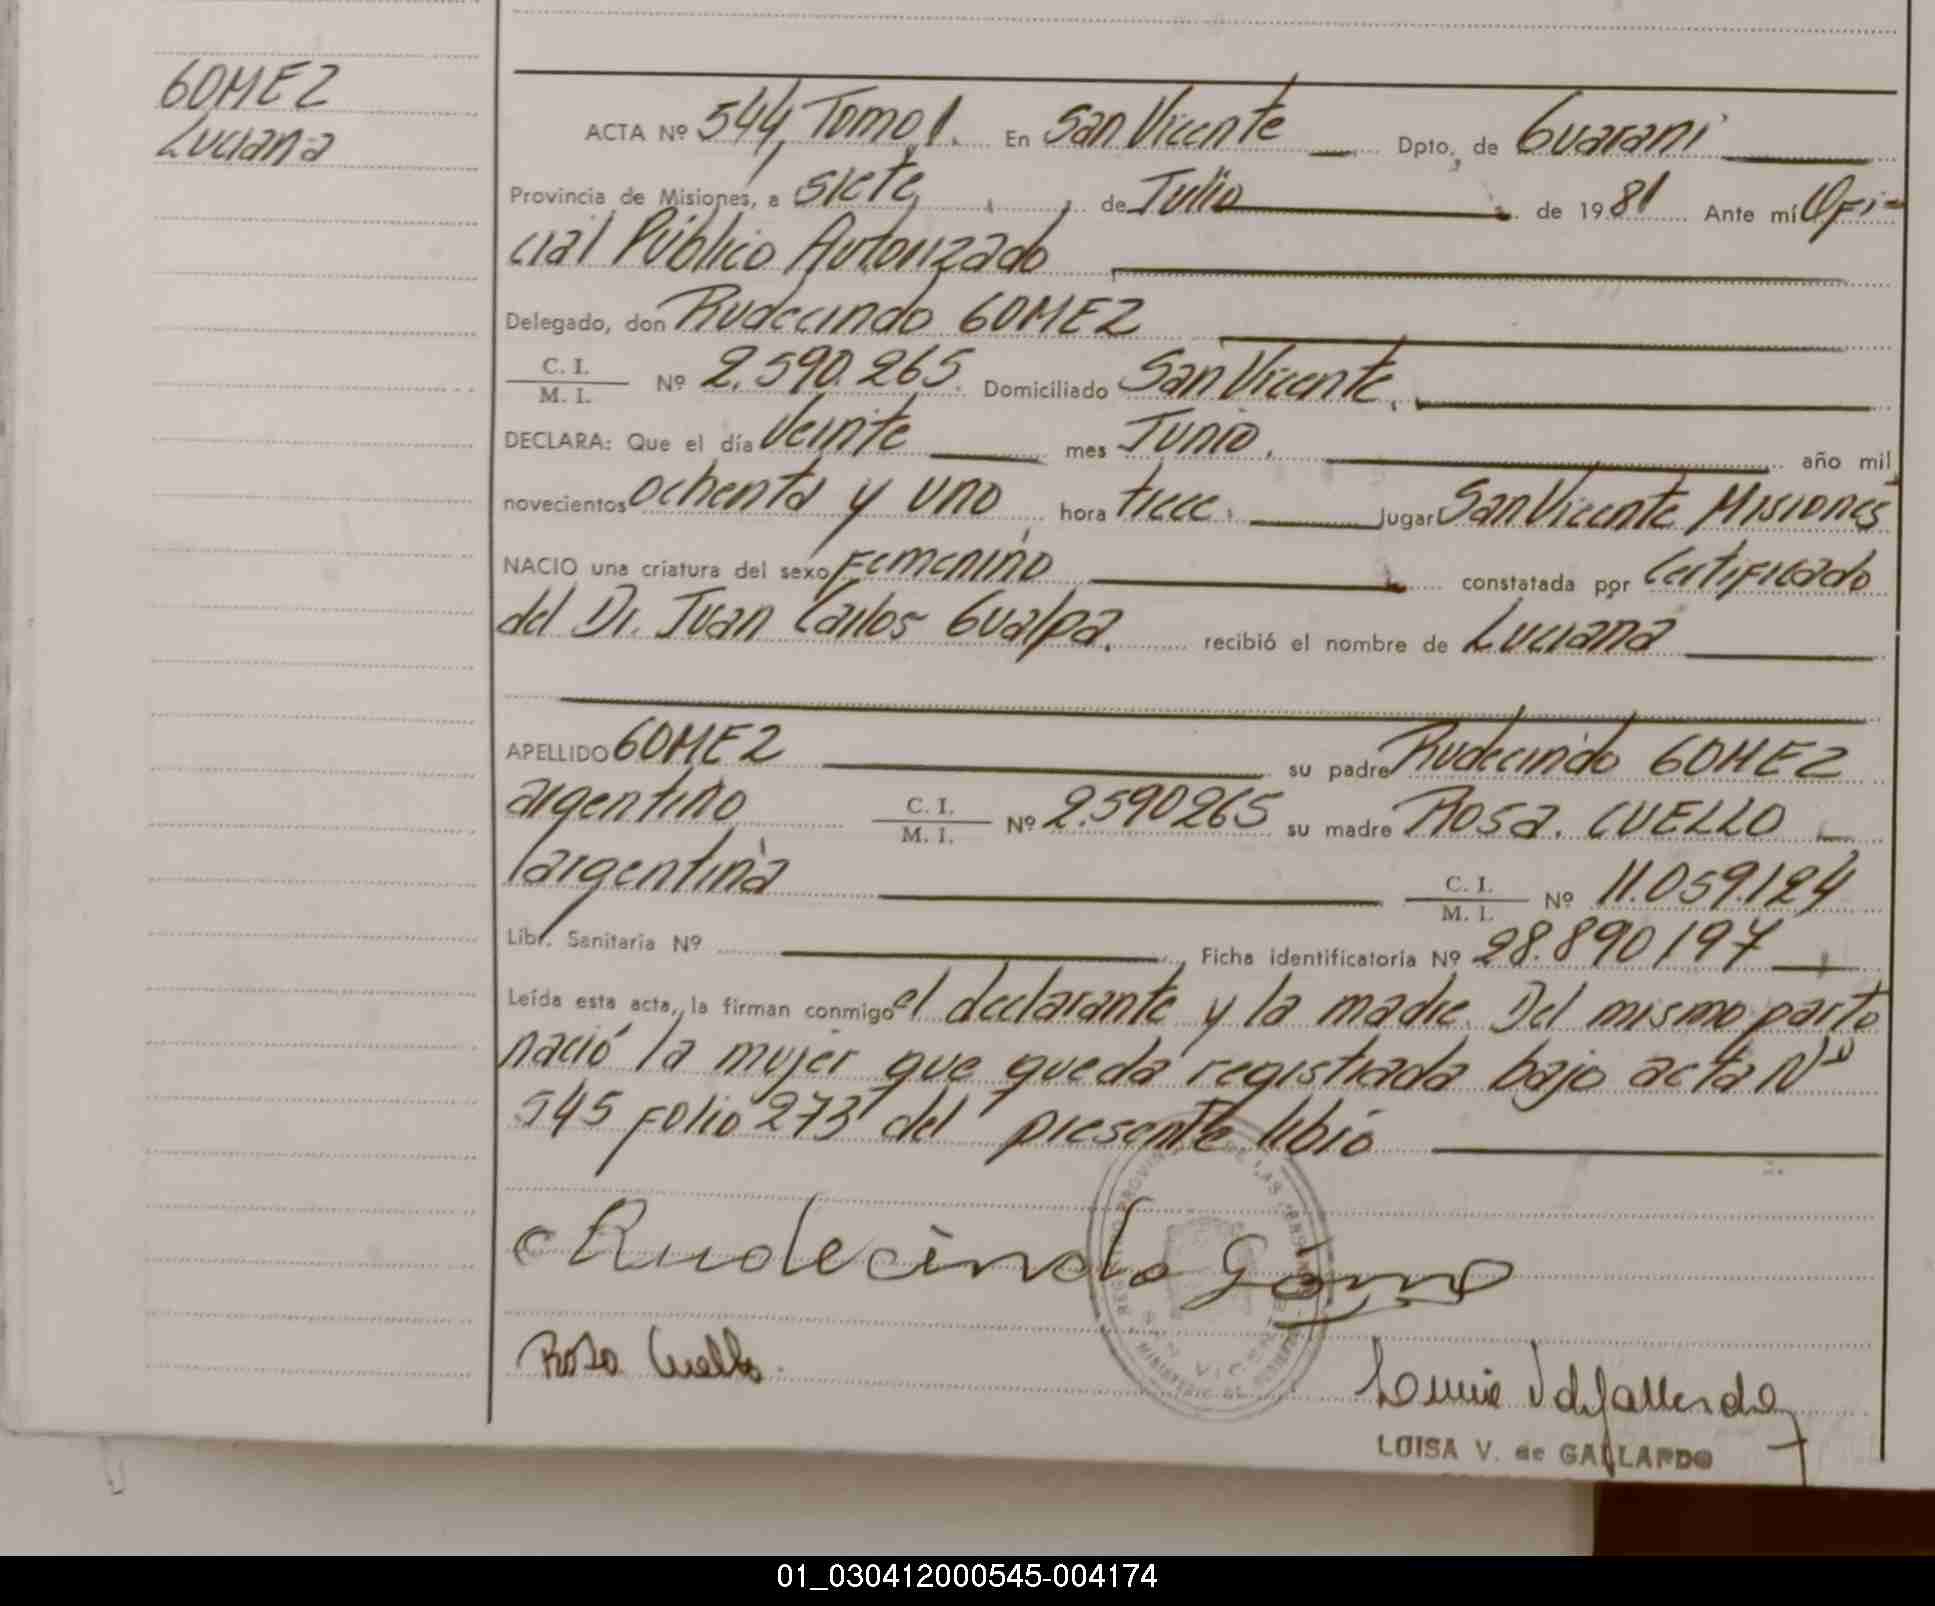 GOMEZ
Luciana
ACTA Nº 544, Tomo, I. En San Vicente Dpto, de Guarani
Provincia de Misiones, a siete, de Julio de 1981 Ante mí Ofi-
cial Público Autorizado
Delegado, don Rudecindo GOMEZ
C. I.
M. I. Nº 2.590.265. Domiciliado San Vicente.
DECLARA: Que el día Veinte mes Junio. año mil
novecientos ochenta y uno hora trece. lugar San Vicente Misiones
NACIO una criatura del sexo Femenino constatada por Certificado
del Dr. Juan Carlos Gualpa. recibió el nombre de Luciana
APELLIDO GOMEZ su padre Rudecindo GOMEZ
argentino C. I.
M. I. Nº 2.590265 su madre Rosa. CUELLO
argentina C. I.
M. I. Nº 11.059.124
Libr. Sanitaria Nº Ficha identificatoria Nº 28.890197
Leída esta acta, la firman conmigo el declarante y la madre. Del mismo parto
nació la mujer que queda registrada bajo acta Nº
545 folio 273 del presente libro
Rudecindo Gómez
SAN VICENTE
Rosa Cuello.
LUISA V. de GALLARDO
01_030412000545-004174